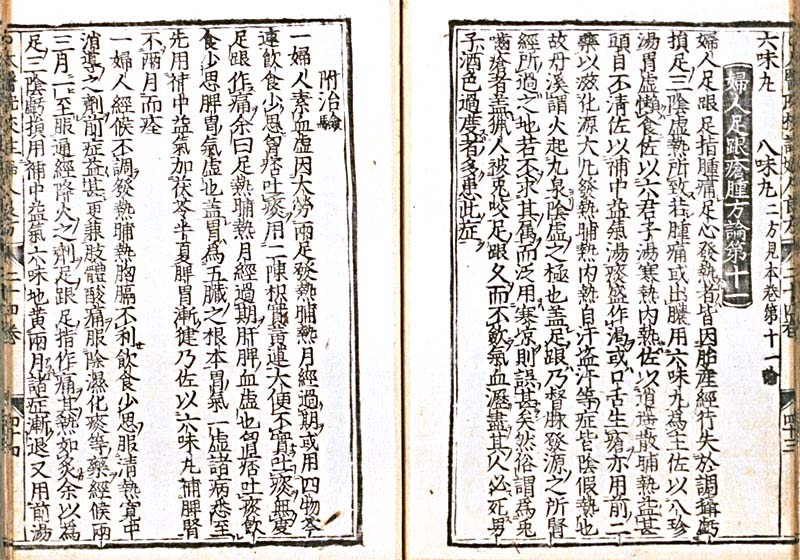 六味丸　八味丸　二方見本卷第十一論
婦人足跟瘡腫方論第十一
婦人足跟足指腫痛足心發熱者皆因胎産經行失於調攝虧
損足三陰虛熱所致若腫痛或出膿用六味丸爲主佐以八珍
湯胃虛懶食佐以六君子湯寒熱内熱佐以逍遙散晡熱益甚
頭目不清佐以補中益氣湯痰盛作渴或口舌生瘡亦用前二
藥以滋化源大凡發熱晡熱内熱自汗盗汗等症皆陰假熱也
故丹溪謂火起九泉陰虛之極也盖足跟乃督脉發源之所腎
經所過之地若不求其屬而泛用寒凉則誤甚矣然俗謂爲兎
嚙瘡者盖猟人被兎咬足跟久而不歛氣血瀝盡其人必死男
子酒色過度者多患此症
附治驗
一婦人素血虛因大勞兩足發熱晡熱月經過期或用四物芩
連飲食少思胷痞吐痰用二陳枳實黄連大便不實吐痰無度
足跟作痛余曰足熱晡熱月經過期肝脾血虛也胷痞吐痰飲
食少思脾胃氣虛也盖胃爲五臓之根本胃氣一虛諸病悉至
先用補中益氣加茯苓半夏脾胃漸健乃佐以六味丸補脾腎
不兩月而痊
一婦人經候不調發熱晡熱胸膈不利飲食少思服清熱寛中
消導之劑前症益甚更兼肢體酸痛服除濕化痰等藥經候兩
三月一至服通經降火之劑足跟足指作痛其熱如炙余以爲
足三陰虧損用補中益氣六味地黄兩月諸症漸退又用前湯
二十四卷
四十四
四十三